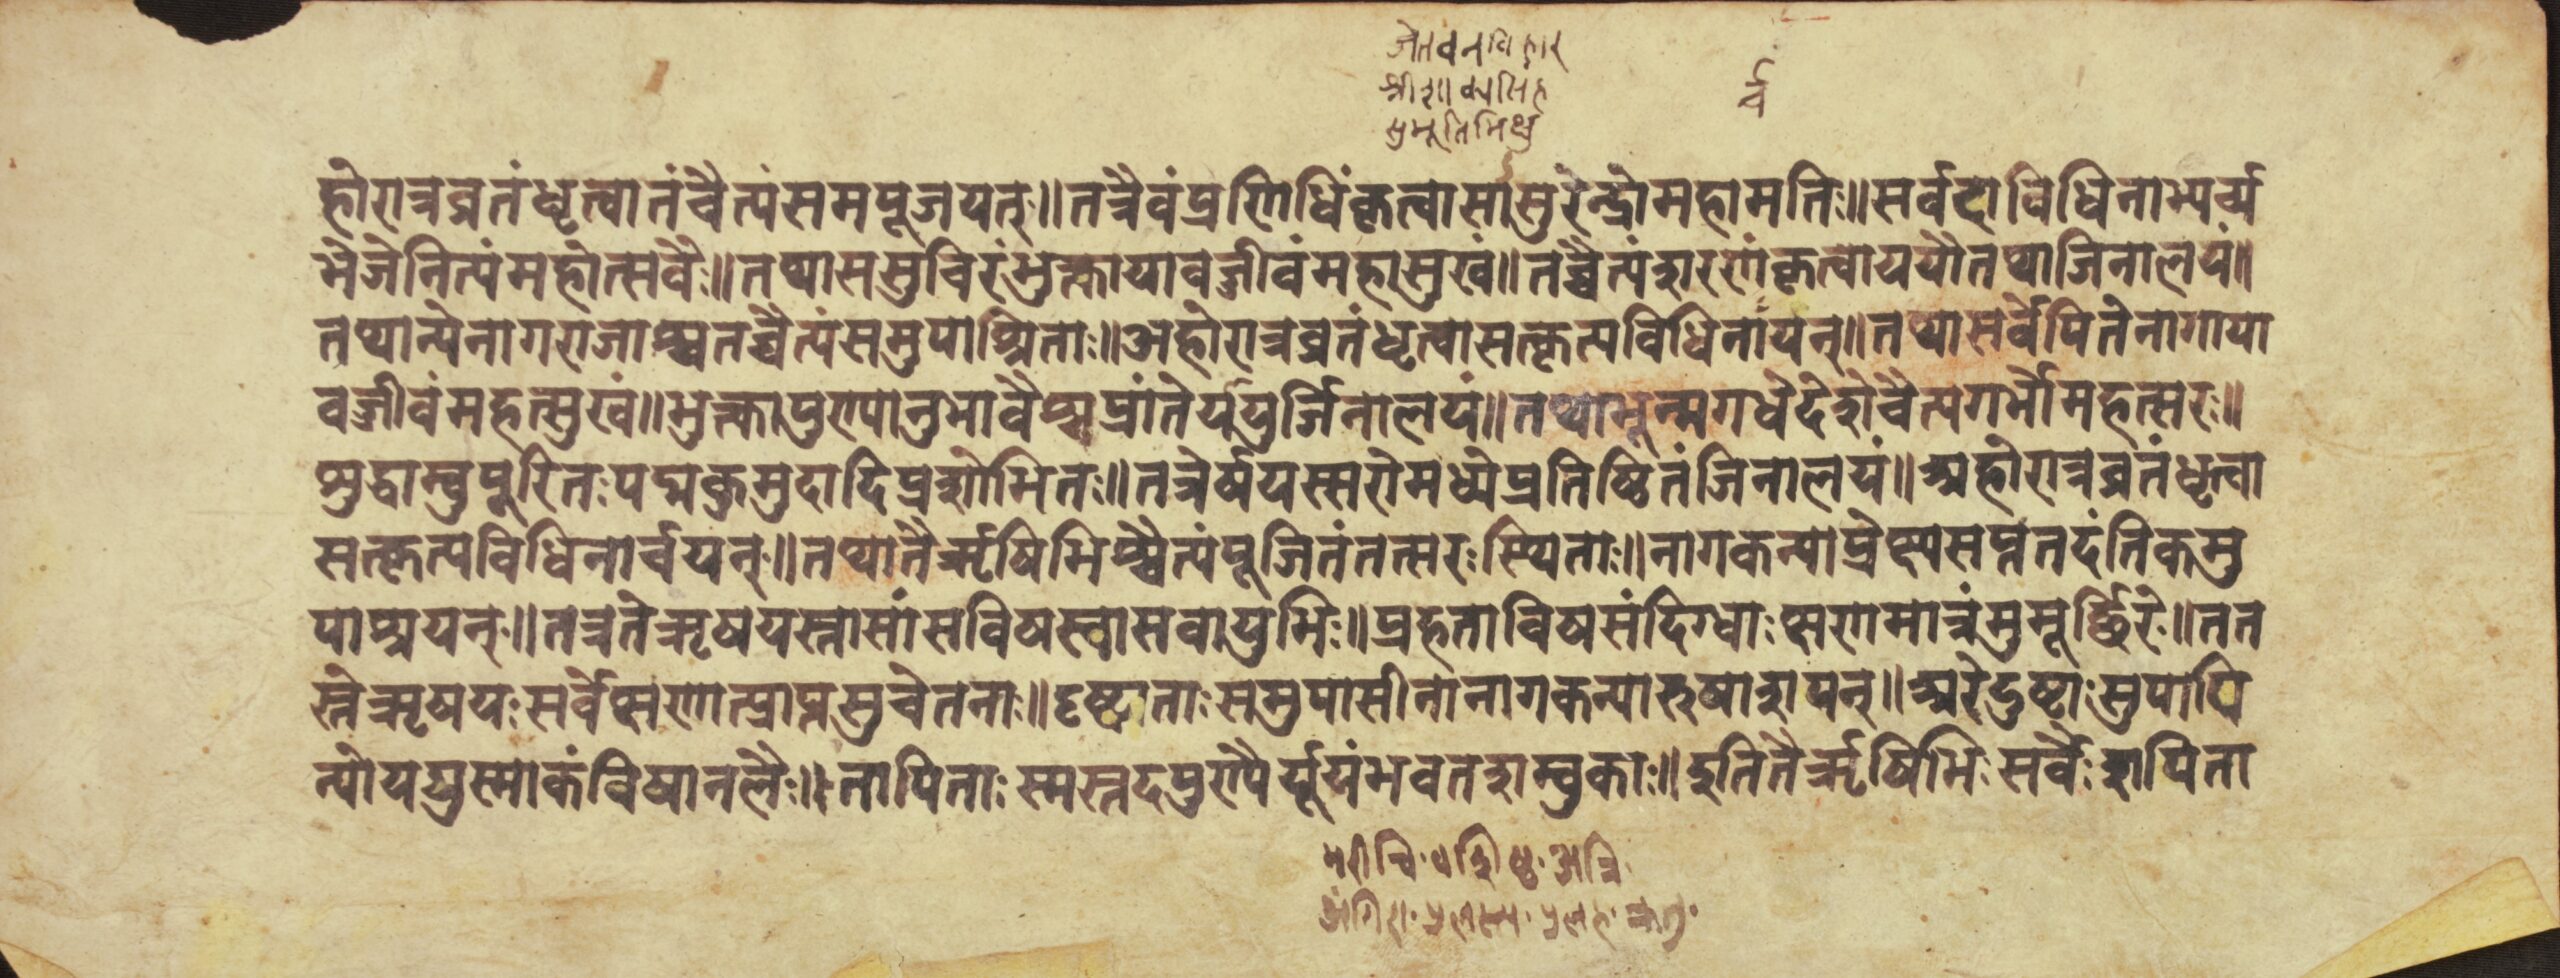 जेतवनविहार
श्रीशाक्यसिंह
सुभूतिभिक्षु
र्च
होरात्रव्रतंधृत्वातंचैत्यंसमपूजयत्॥तत्रैवंप्रणिधिंकृत्वासासुरेन्द्रोमहामतिः॥सर्वदाविधिनाभ्यर्च्य
भेजेनित्यंमहोत्सवैः॥तथाससुचिरंभुक्त्वायावज्जीवंमहासुखं॥तच्चैत्यंशरणंकृत्वाययौतथाजिनालयं॥
तथान्येनागराजाश्चतच्चैत्यंसमुपाश्रिताः॥अहोरात्रव्रतंधृत्वासत्कृत्यविधिनायन्॥तथासर्वेपितेनागाया
वज्जीवंमहत्सुखं॥भुक्त्वापुण्यानुभावैश्चप्रांतेर्ययुर्जिनालयं॥तथाभून्मगधेदेशेचैत्यगर्भोमहत्सरः॥
शुद्धाम्बुपूरितःपद्मकुमुदादिप्रशोभितः॥तत्रेर्षयस्सरोमध्येप्रतिष्ठितंजिनालयं॥अहोरात्रव्रतंधृत्वा
सत्कृत्यविधिनार्चयन्॥तथातैर्ऋषिभिश्चैत्यंपूजितंतत्सरःस्थिताः॥नागकन्याप्रेक्ष्यसप्ततदंतिकमु
पाश्रयन्॥तत्रतेऋषयस्तासांसविषस्वासवायुभिः॥प्रहताविषसंदिग्धाःक्षणमात्रंमुमूर्छिरे॥तत
स्तेऋषयःसर्वेक्षणात्प्राप्तसुचेतनाः॥दृष्ट्वाताःसमुपासीनानागकन्यारुषाशपन्॥अरेदुष्टाःसुपापि
न्योययुस्माकंविषानलैः॥तापिताःस्मस्तदपुण्यैर्यूयंभवतशम्बुकाः॥इतितैर्ऋषिभिःसर्वैःशापिता
मरीचि॰वशिष्ठ॰अत्रि॰
अंगिरा॰पुलस्त्य॰पुलह॰क्रतु॰